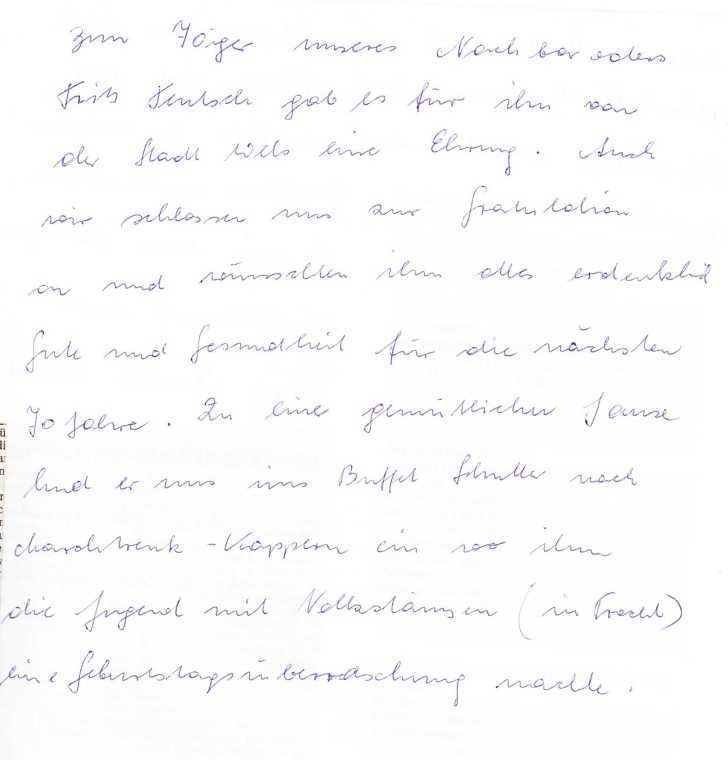 Zum 70iger unseres Nachbar aders
Fritz Teutsch gab es für ihn von
der Stadt Wels eine Ehrung. Auch
wir schlossen uns zur Gratulation
an und wünschten ihm alles erdenklich
Gute und Gesundheit für die nächsten
70 Jahre. Zu einer gemütlichen Jause
lud er uns ins Buffet Schuller nach
Marchtrenk - Kappern ein wo ihm
die Jugend mit Volkstänzen (in Tracht)
eine Geburtstagsüberraschung machte.